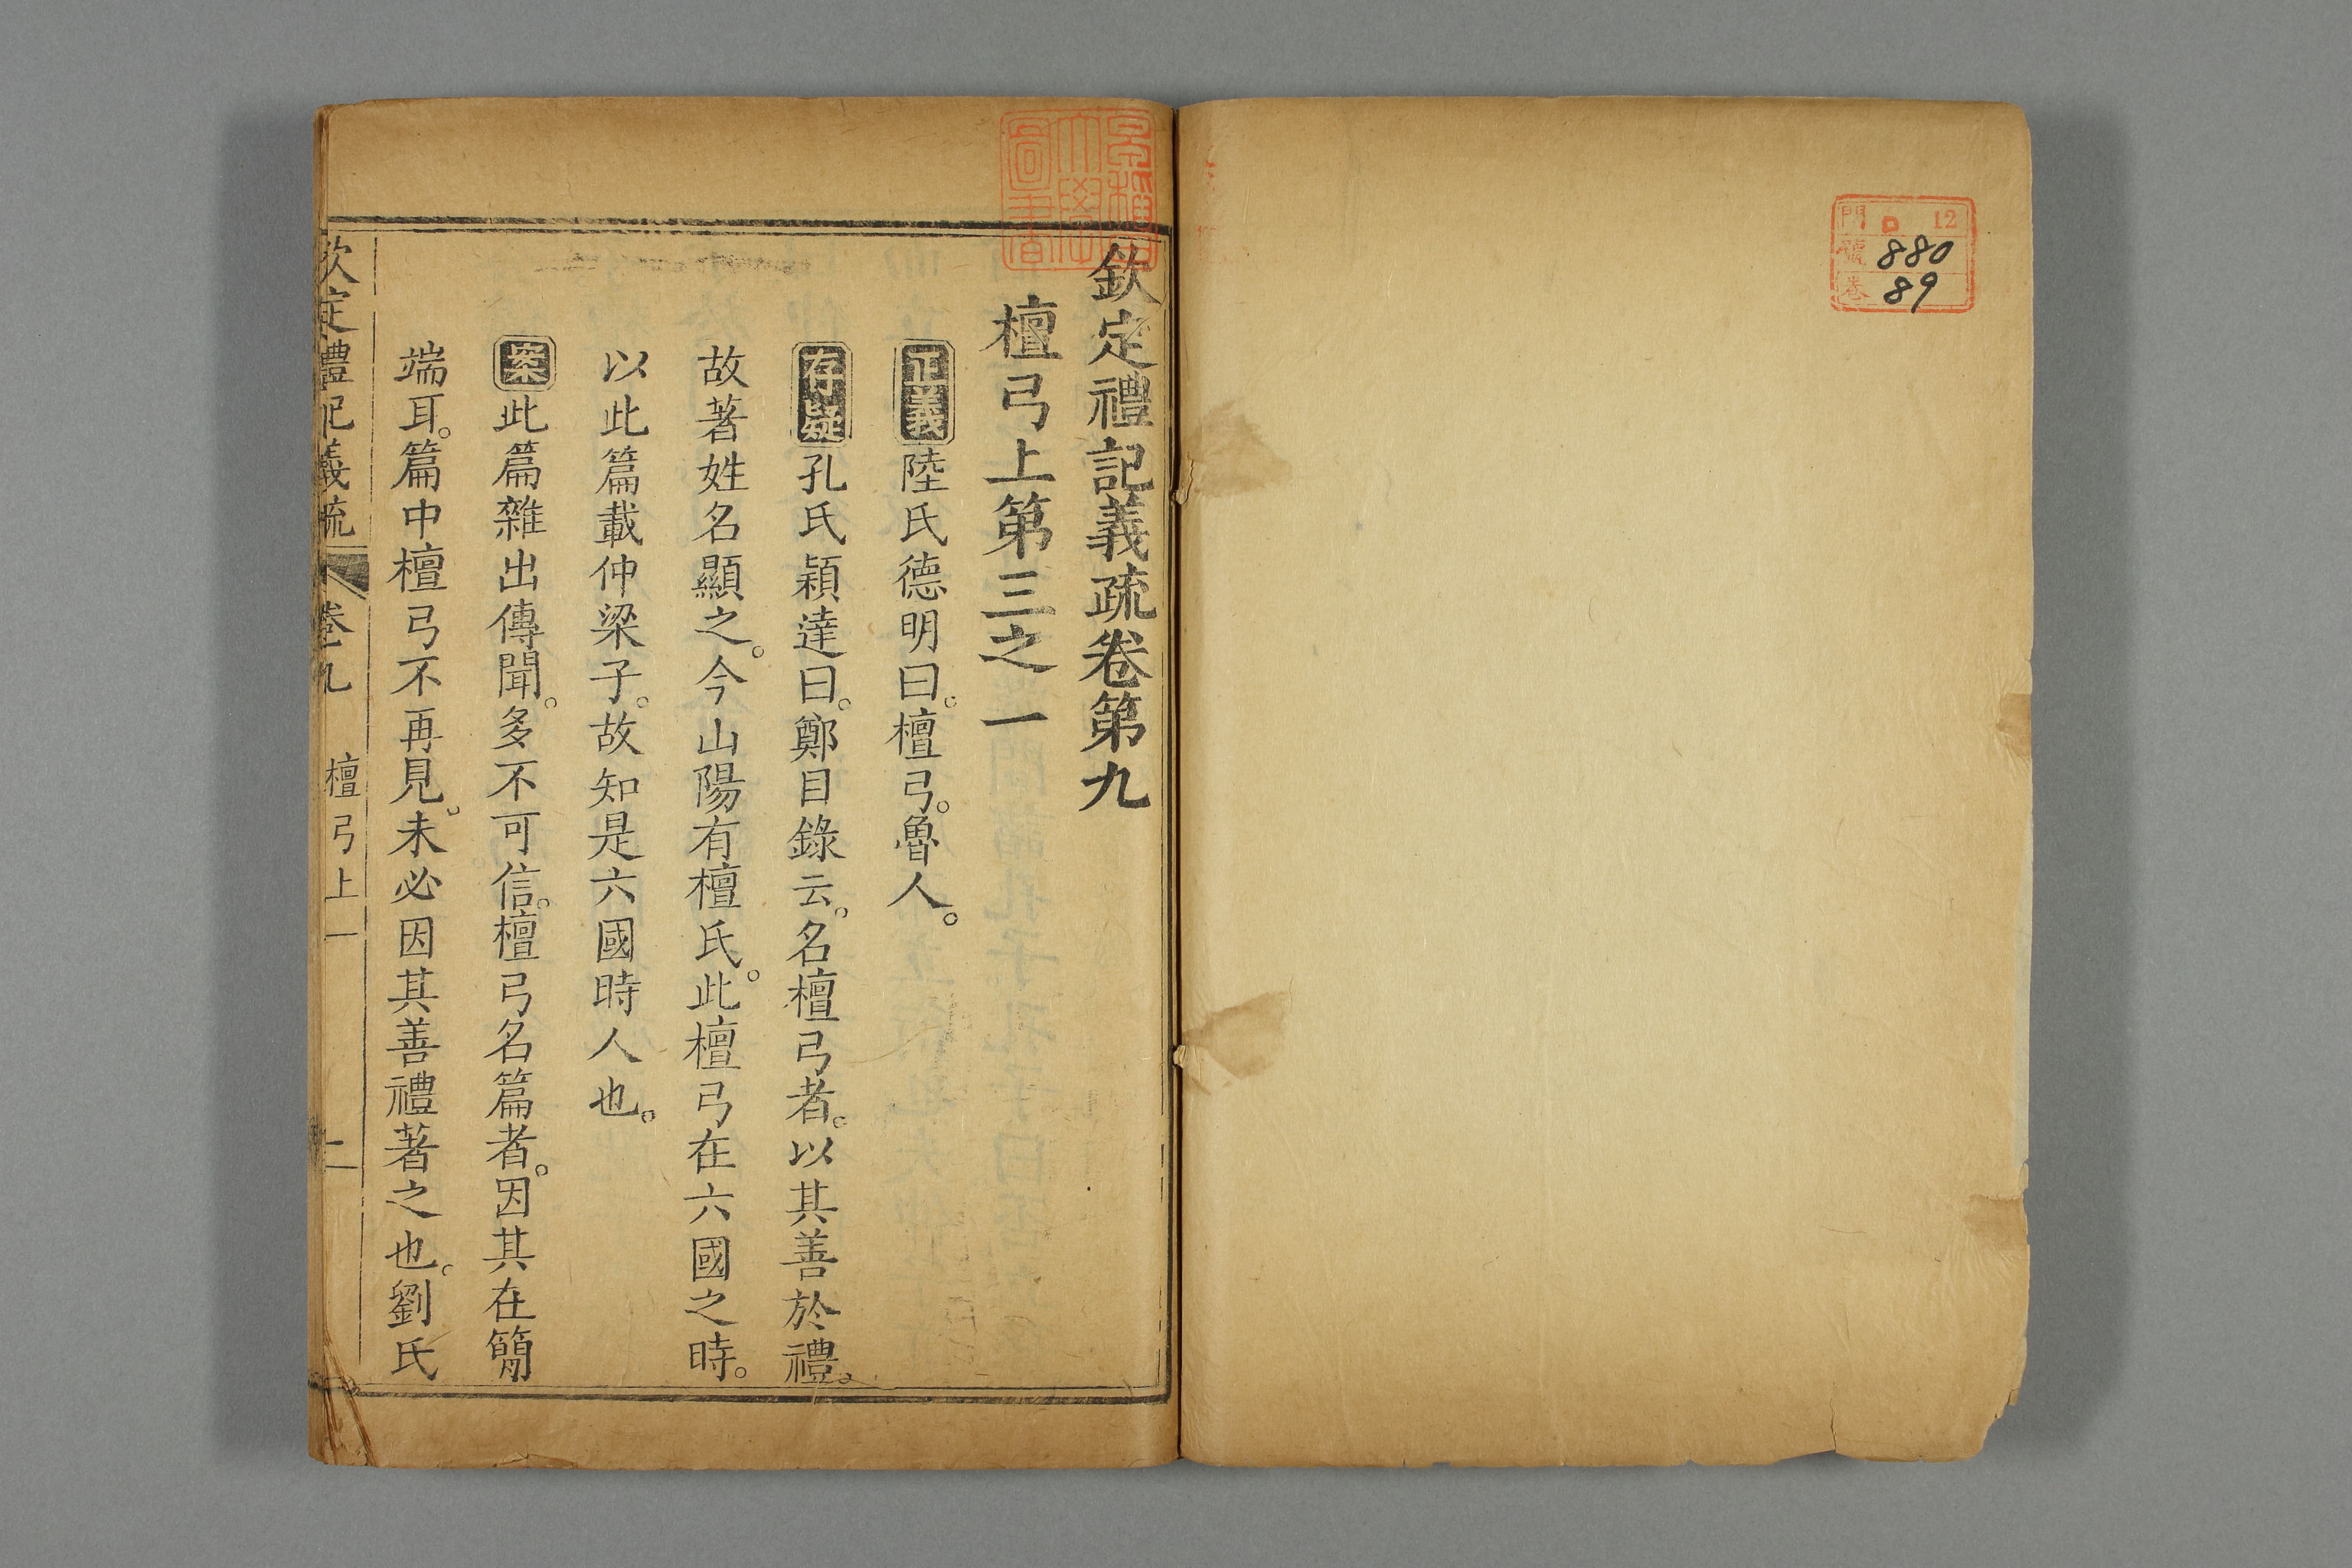 門 ロ 12
號 880
卷 89
早稲田大學圖書
欽定禮記義疏卷第九
檀弓上第三之一
正義陸氏德明曰。檀弓。魯人。
存疑孔氏穎達曰。鄭目錄云。名檀弓者。以其善於禮。
故著姓名顯之。今山陽有檀氏。此檀弓在六國之時。
以此篇載仲梁子。故知是六國時人也。
案此篇雜出傳聞。多不可信。檀弓名篇者。因其在簡
端耳。篇中檀弓不再見。未必因其善禮著之也。劉氏
欽定禮記義疏 卷九 檀弓上一 二